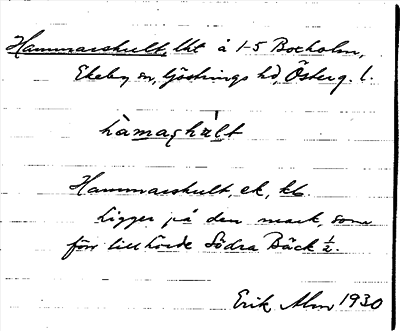 Hammarshult, lht å 1-5 Boxholm,
Ekeby sn, Göstrings hd, Österg. l.
Hammarshult, ek, kb.
Ligger på den mark, som
förr tillhörde Södra Bäck ½.
Erik Alm 1930